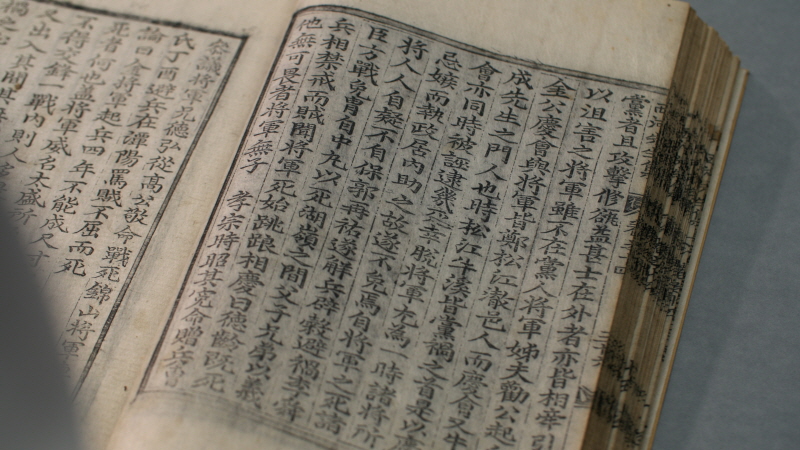 黨者且攻擊修郤益甚士在外者亦皆相牽引
以沮害之將軍雖不在黨人將軍姊夫勸公起
金公慶會與將軍皆鄭松江澈邑人而慶會又牛
成先生之門人也時松江牛溪皆黨禍之首是以慶
會亦同時被誣逮幾死幸脫將軍尤為一時諸將所
忌嫉而執政居內助之故遂不免焉自將軍之死諸
將人人自疑不自保郭再祐遂解兵辟穀避禍李舜
臣方戰免冑自中丸以死湖嶺之間父子兄弟以義
兵相禁戒而賊聞將軍死始跳踉相慶曰德齡既死
他無可畏者將軍無子 孝宗時昭其冤命贈兵曹
參議將軍兄德弘從高公敬命戰死錦山將軍
氏丁酉避兵在潭陽罵賊不屈而死
論曰金將軍起兵四年不能成尺寸
死者何也蓋將軍威名太盛所
不得交鋒一戰內則人
又出入其間其
禍之